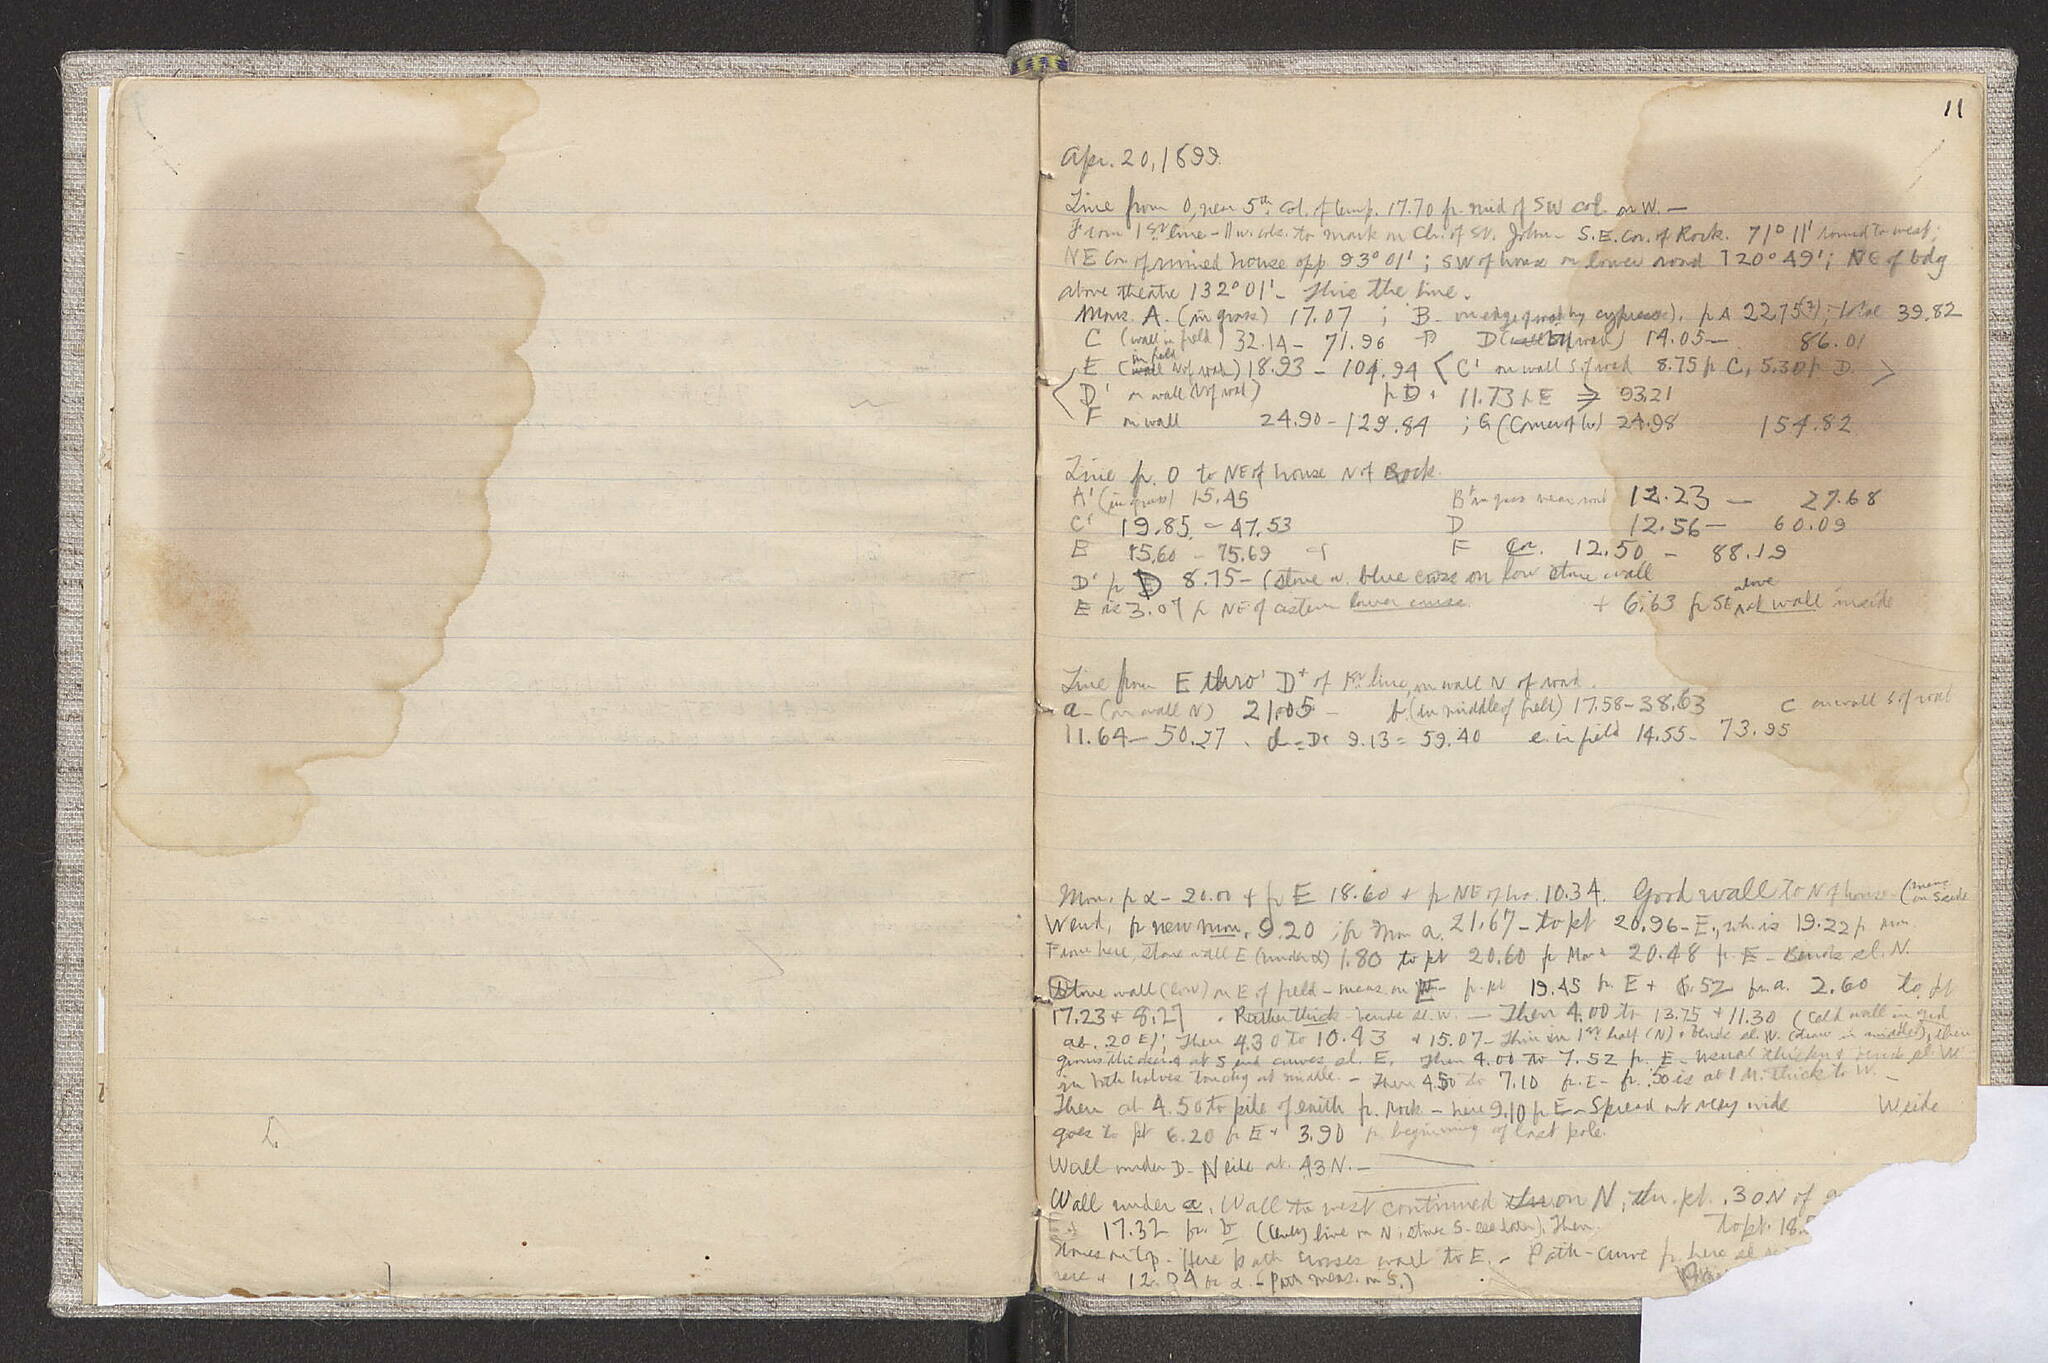 11
Apr. 20, 1899.
Line from O, near 5th col. of temp. 17.70 fr. mid of SW col. on W. —
From 1st line - to mark on Ch. of St. John - S.E. Cor. of Rock. 71° 11' round to west;
NE Cor of ruined house opp 93° 01'; SW of house on lower road 120° 49'; NE of bdg
above theatre 132° 01' - This the line.
Mons. A. (in grass) 17.07 ; B - on edge of by cypresses). fr A 22.75(?); total 39.82
C (wall in field) 32.14 - 71.96 D 14.05 — 86.01
E (in field N of wall) 18.93 - 104.94 < C' on wall S. of road 8.75 fr C, 5.30 fr D. >
< D' on wall (N of road) fr D. 11.73 fr E > 93.21
F on wall 24.90 - 129.84 ; G (Corner of ho) 24.98 154.82
Line fr. O to NE of house N of Rock.
A' (in grass) 15.45 B' in grass near road 12.23 — 27.68
C' 19.85 - 47.53 D 12.56 — 60.09
E 15.60 - 75.69 F Cor. 12.50 - 88.19
D' fr D 8.75 - (stone w. blue cross on low stone wall
E is 3.07 fr NE of cistern lower course + 6.63 fr SE above wall inside
Line from E thro' D+ of 1st line, on wall N of road.
a - (on wall N) 21.05 - b. (in middle of field) 17.58 - 38.63 C on wall S. of road
11.64 - 50.27. d = D' 9.13 = 59.40 e. in field 14.55 - 73.95
Mon. fr α - 20.00 + fr E 18.60 + fr NE of ho. 10.34. Good wall to N of house - (meas. on S side
W end, fr new mon. 9.20 ; fr Mon a. 21.67 - to pt 20.96 - E., wh. is 19.22 fr mon.
From here, stone wall E (under α) 1.80 to pt 20.60 fr Mon + 20.48 fr E - Bends sl. N.
Stone wall (low) on E of field - meas. on W - fr. pt 19.45 fr. E + 6.52 fr. a. 2.60 to pt
17.23 + 8.27. Rather thick - bends sl. W. — Then 4.00 to 13.75 + 11.30 (Cold wall in grd
at .20 E); Then 4.30 to 10.43 + 15.07 - Thin in 1st half (N) + bends sl. W. (draw in middle), then
grows thicker + at S end curves sl. E. Then 4.00 to 7.52 fr. E - usual thickn + bends sl. W
in both halves touchg at middle. - Then 4.50 to 7.10 fr. E - fr. .50 is at 1 M. thick to W. —
Then at 4.50 to pile of earth fr. Rock - here 9.10 fr E - Spread out very wide W side
goes to pt 6.20 fr E + 3.90 fr. beginning of last pole.
Wall under D - N side at .43 N. —
Wall under a. Wall to west continued on N, thr. pt. .30 N of
17.32 fr. b (Center line on N, stones S - see later). Then to pt. 18.
Stones on top. Here path crosses wall to E. - Path - curve fr. here sl.
here + 12.94 to α - (Path meas. on S.)